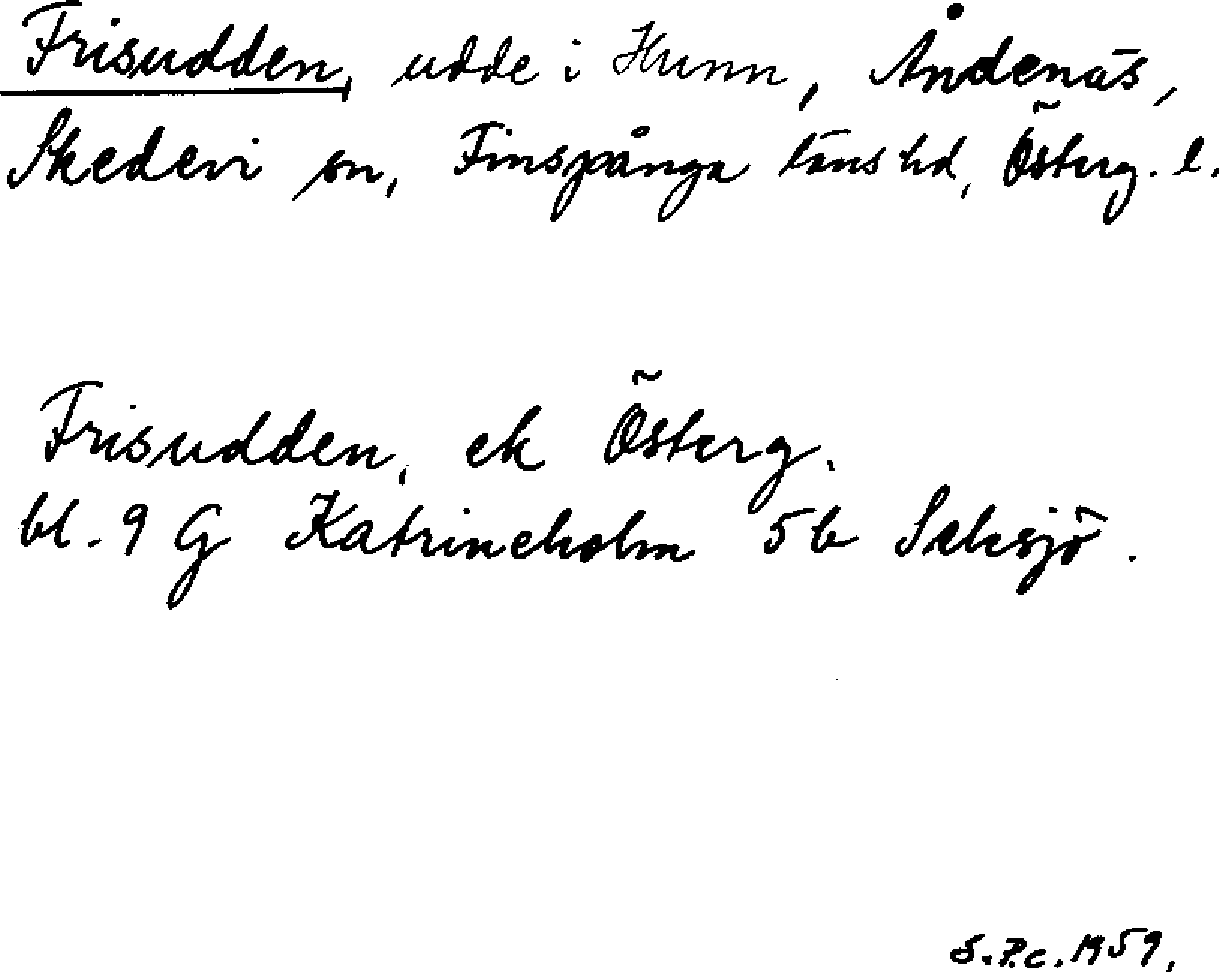 Frisudden, udde i Hunn, Ändenäs,
Skedevi sn, Finspånga läns hd, Österg. l.
Frisudden, ek Österg.
bl. 9 G Katrineholm 5b
S.P.c. 1959.